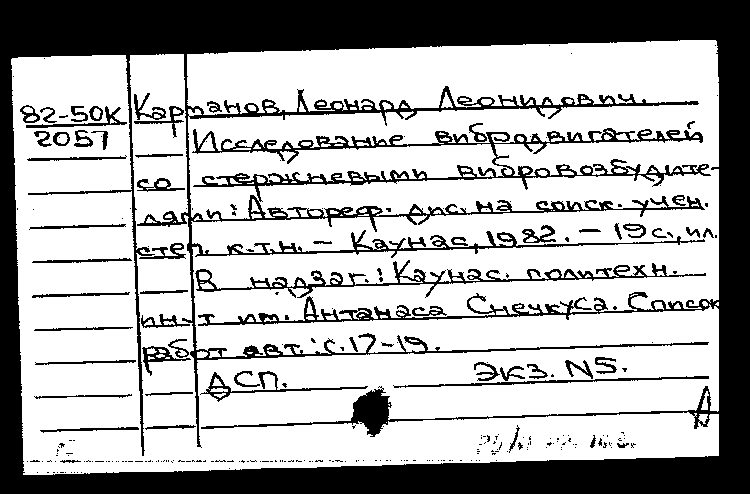 82-50К Карпанов, Леонард Леонидович.
2057 Исследование вибродвигателей
со стержневыми вибровозбудите-
лями: Автореф. дис. на соиск. учен.
степ. к.т.н. – Каунас, 1982. – 19 с., ил.
В надзаг.: Каунас. политехн.
ин-т им. Антанаса Снечкуса. Список
работ авт.: с. 17-19.
ДСП. Экз. N5.
А